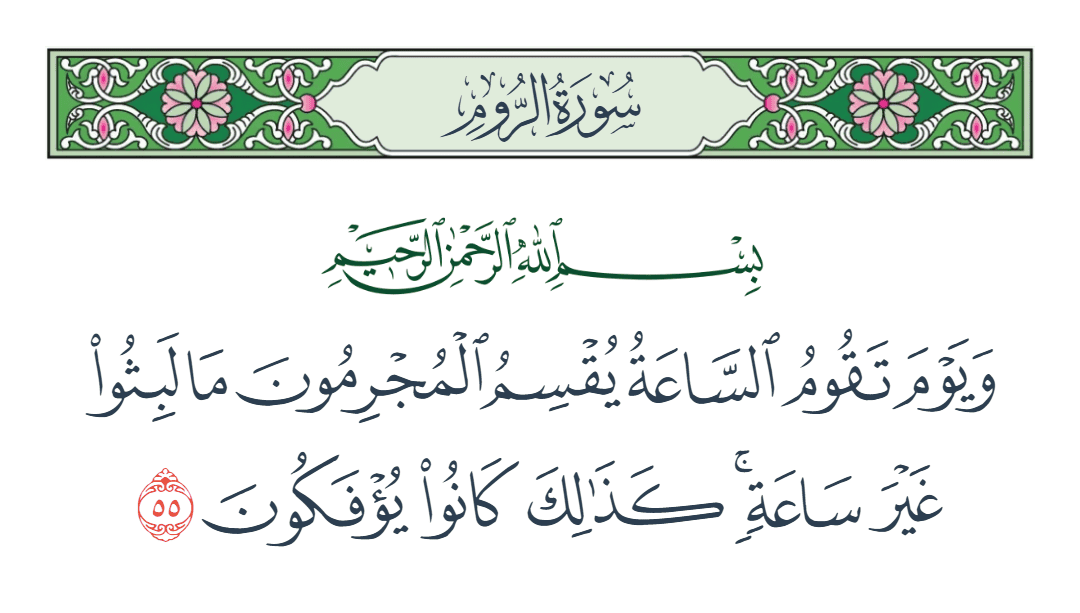 سُورَةُ الرُّومِ
بِسْمِ ٱللَّهِ ٱلرَّحْمَٰنِ ٱلرَّحِيمِ
وَيَوْمَ تَقُومُ ٱلسَّاعَةُ يُقْسِمُ ٱلْمُجْرِمُونَ مَا لَبِثُوا۟
غَيْرَ سَاعَةٍۢ ۚ كَذَٰلِكَ كَانُوا۟ يُؤْفَكُونَ ٥٥